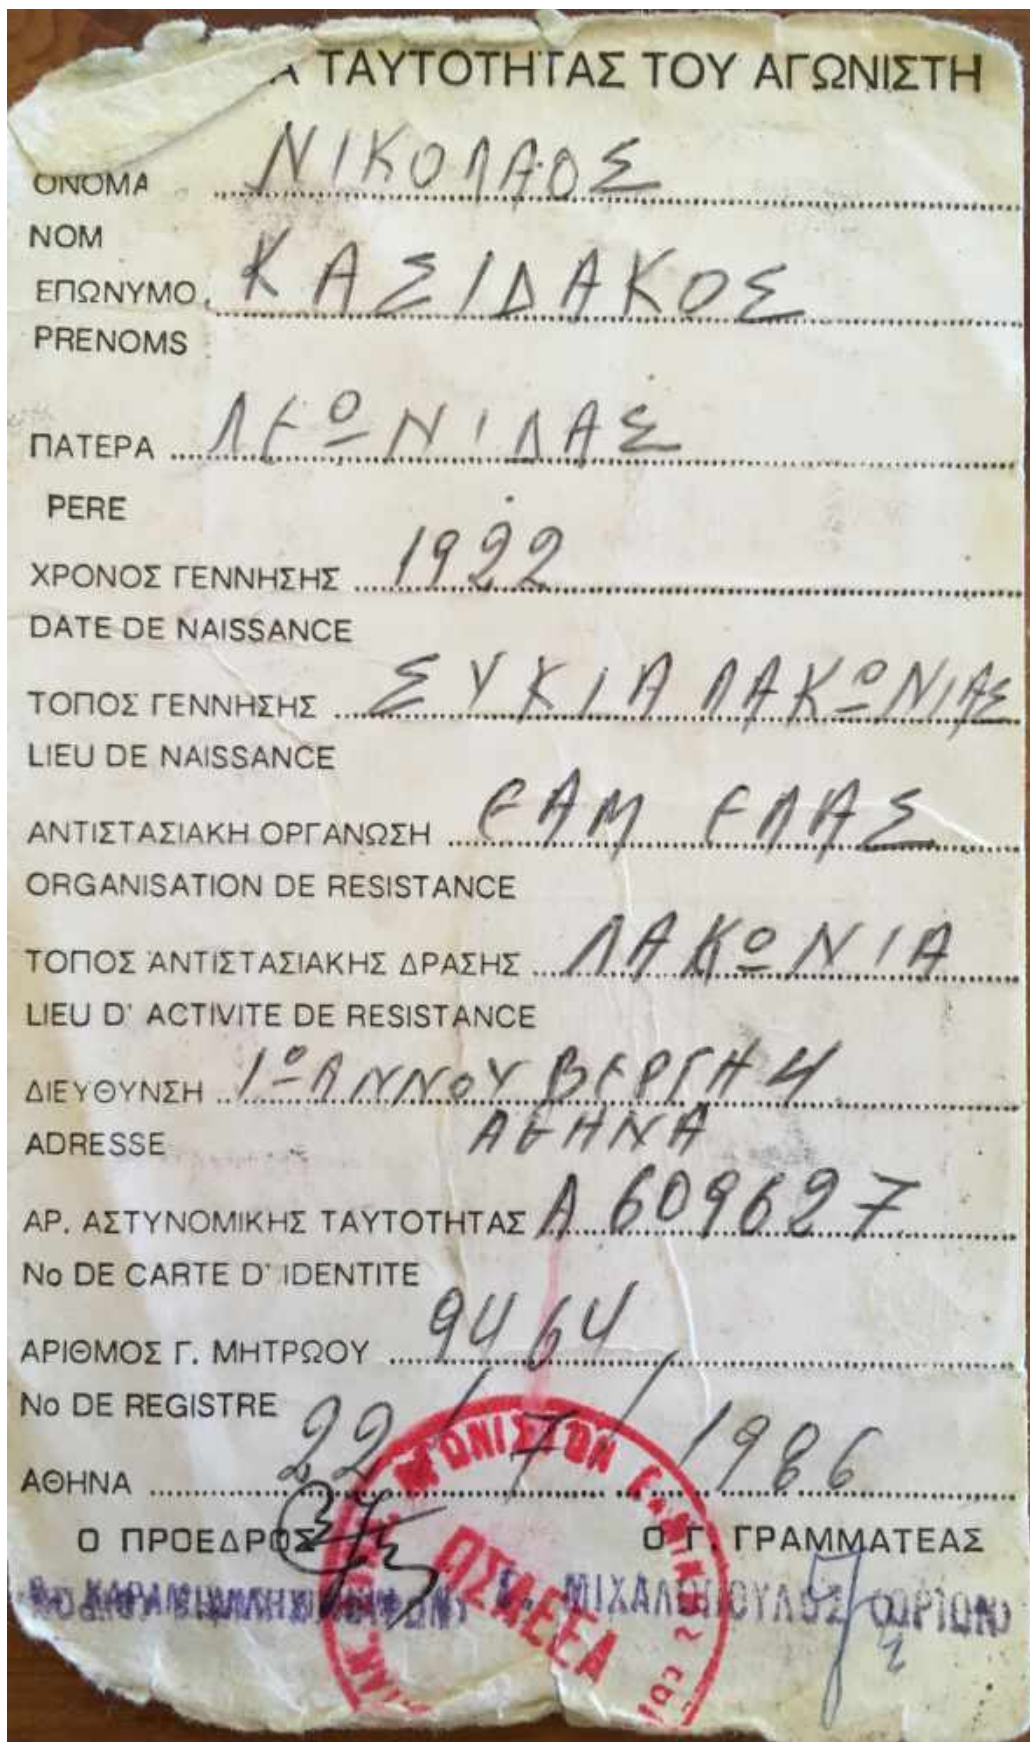 ΤΑΥΤΟΤΗΤΑΣ ΤΟΥ ΑΓΩΝΙΣΤΗ
ΟΝΟΜΑ ΝΙΚΟΛΑΟΣ
NOM
ΕΠΩΝΥΜΟ ΚΑΣΙΔΑΚΟΣ
PRENOMS
ΠΑΤΕΡΑ ΛΕΩΝΙΔΑΣ
PERE
ΧΡΟΝΟΣ ΓΕΝΝΗΣΗΣ 1922
DATE DE NAISSANCE
ΤΟΠΟΣ ΓΕΝΝΗΣΗΣ ΣΥΚΙΑ ΛΑΚΩΝΙΑΣ
LIEU DE NAISSANCE
ΑΝΤΙΣΤΑΣΙΑΚΗ ΟΡΓΑΝΩΣΗ ΕΑΜ ΕΛΑΣ
ORGANISATION DE RESISTANCE
ΤΟΠΟΣ ΑΝΤΙΣΤΑΣΙΑΚΗΣ ΔΡΑΣΗΣ ΛΑΚΩΝΙΑ
LIEU D' ACTIVITE DE RESISTANCE
ΔΙΕΥΘΥΝΣΗ ΙΩΑΝΝΟΥ ΒΕΡΓΗ 4
ADRESSE ΑΘΗΝΑ
ΑΡ. ΑΣΤΥΝΟΜΙΚΗΣ ΤΑΥΤΟΤΗΤΑΣ Α 609627
No DE CARTE D' IDENTITE
ΑΡΙΘΜΟΣ Γ. ΜΗΤΡΩΟΥ 9464
No DE REGISTRE
ΑΘΗΝΑ 22/7/1986
Ο ΠΡΟΕΔΡΟΣ Ο Γ. ΓΡΑΜΜΑΤΕΑΣ
ΜΙΧΑΛΟΠΟΥΛΟΣ (ΩΡΙΩΝ)
ΠΣΑΕΕΑ